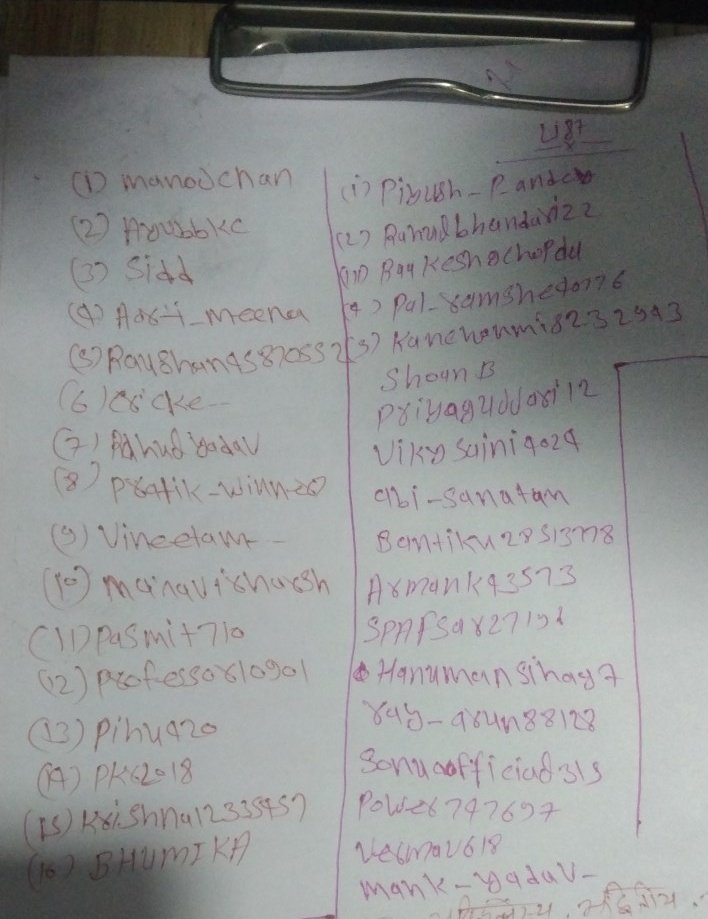 List
(1) manojchan
(2) Ayubbkc
(3) Sidd
(4) Aarti_meena
(5) Raushan45870552
(6) cricke--
(7) Rahulyadav
(8) Pratik-winner
(9) Vineetam--
(10)
(11) Pasmit710
(12) Professor10901
(13) Pihu420
(14) PK62018
(15) Krishna12335457
(16) BHUMIKA
(1) Piyush-Pandey
(2) Rahulbhandari22
(4) Pal-ramshe40776
(5) Kanchanmis232943
ShounB
Priyagujjari12
Vikysaini4024
abi-sanatan
Bantiku2851378
Armank43573
SPAFSar27191
Hanumansihag7
ray-arun88128
Sonuofficial315
Power747697
Vermav618
mank-yadav-